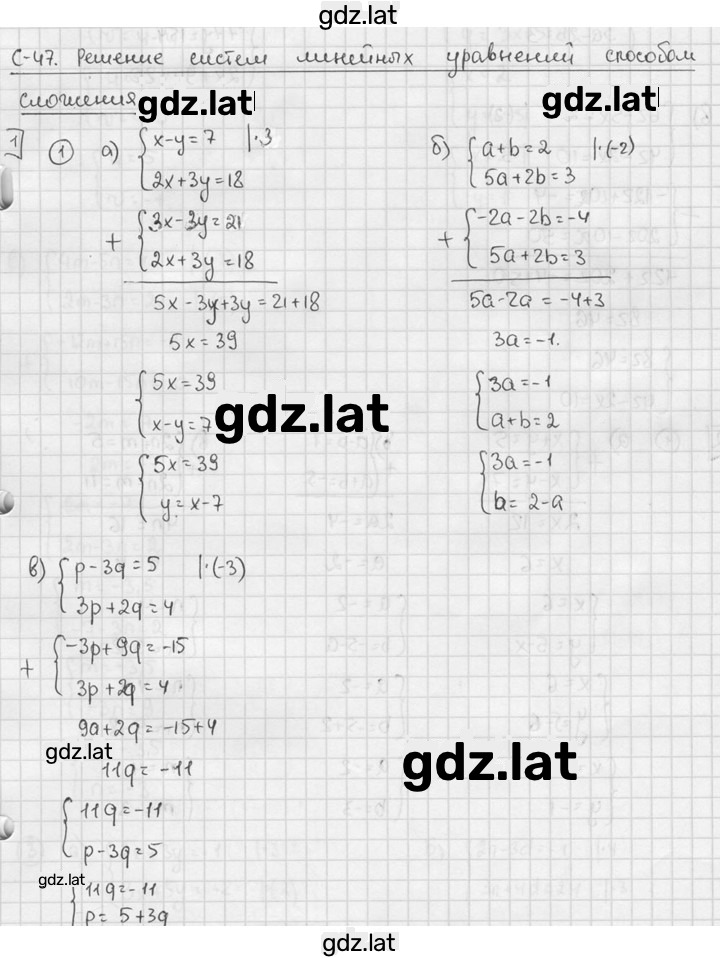 gdz.lat
С-47. Решение систем линейных уравнений способом
сложения
gdz.lat
gdz.lat
1 ① а) { x-y=7 |·3
2x+3y=18
+ { 3x-3y=21
2x+3y=18
5x-3y+3y=21+18
5x=39
{ 5x=39
x-y=7
gdz.lat
{ 5x=39
y=x-7
б) { a+b=2 |·(-2)
5a+2b=3
+ { -2a-2b=-4
5a+2b=3
5a-2a=-4+3
3a=-1.
{ 3a=-1
a+b=2
{ 3a=-1
b=2-a
в) { p-3q=5 |·(-3)
3p+2q=4
+ { -3p+9q=-15
3p+2q=4
9a+2q=-15+4
gdz.lat
11q=-11
gdz.lat
{ 11q=-11
p-3q=5
gdz.lat
{ 11q=-11
p=5+3q
gdz.lat